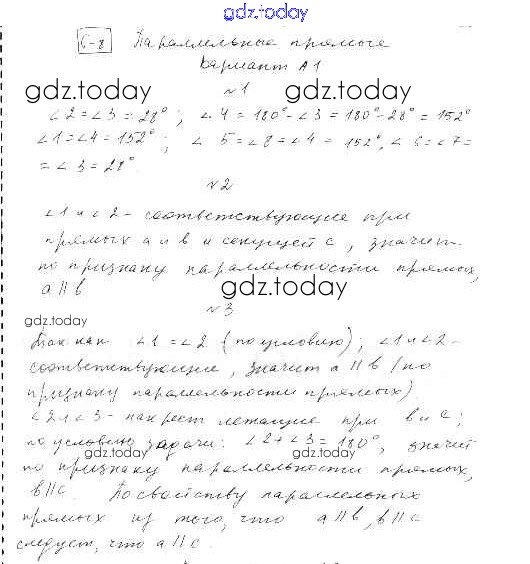 gdz.today
С-8 Параллельные прямые
Вариант А1
gdz.today gdz.today
№1
∠2 = ∠3 = 28°; ∠4 = 180° - ∠3 = 180° - 28° = 152°
∠1 = ∠4 = 152°; ∠5 = ∠8 = ∠4 = 152°, ∠6 = ∠7 =
= ∠3 = 28°.
№2
∠1 и ∠2 - соответствующие при
прямых a и b и секущей c, значит
по признаку параллельности прямых,
a || b
gdz.today
№3
gdz.today
Так как ∠1 = ∠2 (по условию); ∠1 и ∠2 -
соответствующие, значит a || b (по
признаку параллельности прямых)
∠2 и ∠3 - накрест лежащие при b и c;
по условию задачи: ∠2 + ∠3 = 180°, значит
gdz.today gdz.today
по признаку параллельности прямых,
b || c. По свойству параллельных
прямых из того, что a || b, b || c
следует, что a || c.